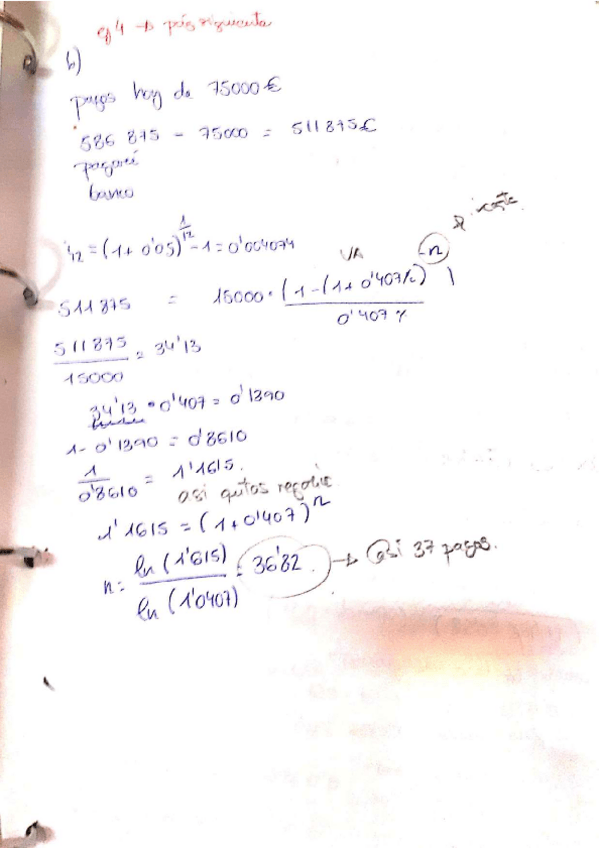 ej 4 → pág siguiente
b)
pagos hoy de 75000€
586 875 - 75000 = 511875€
pagaré
banco
i12 = (1+0'05)^1/12 - 1 = 0'004074
VA
resta
511875 = 15000 · (1-(1+0'407%)^-n) / 0'407%
511875 / 15000 = 34'13
34'13 · 0'407 = 0'1390
1-0'1390 = 0'8610
1 / 0'8610 = 1'1615.
asi quitas negativo
1'1615 = (1+0'407)^n
n = ln (1'615) / ln (1'0407) = 36'82 → Casi 37 pagos.